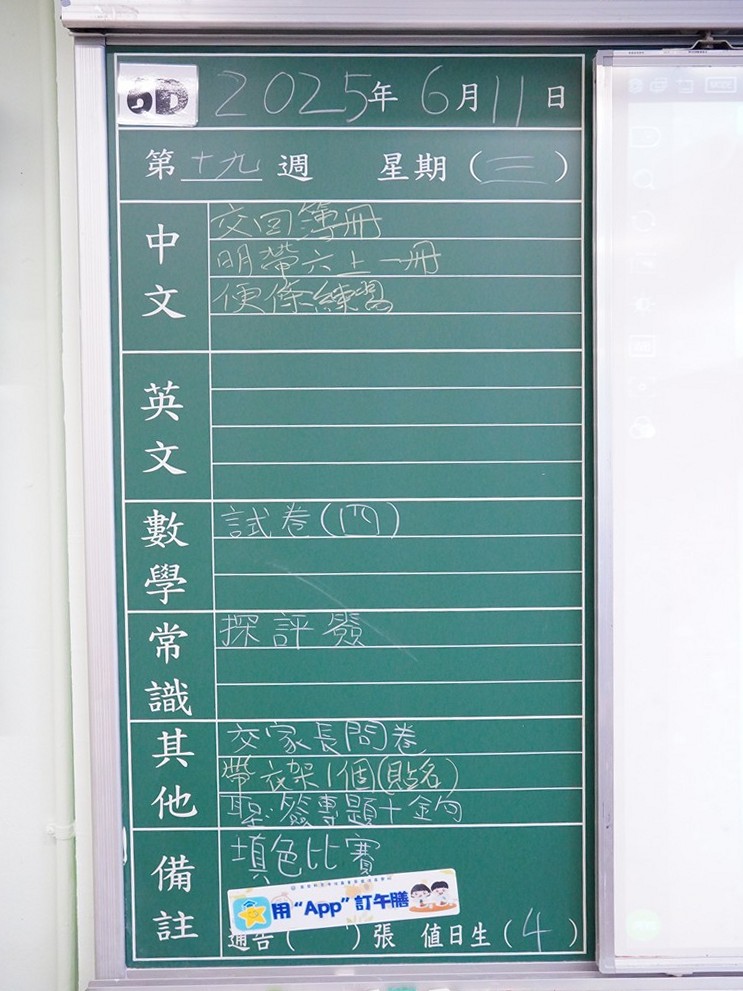 2025年 6月11日
第十九週 星期(三)
中文
交回簿冊
明帶六上一冊
便條練習
英文
數學
試卷(四)
常識
探評簽
其他
交家長問卷
帶衣架1個(貼名)
聖:簽專題+金句
備註
填色比賽
用“App”訂午膳
通告( )張 值日生(4)